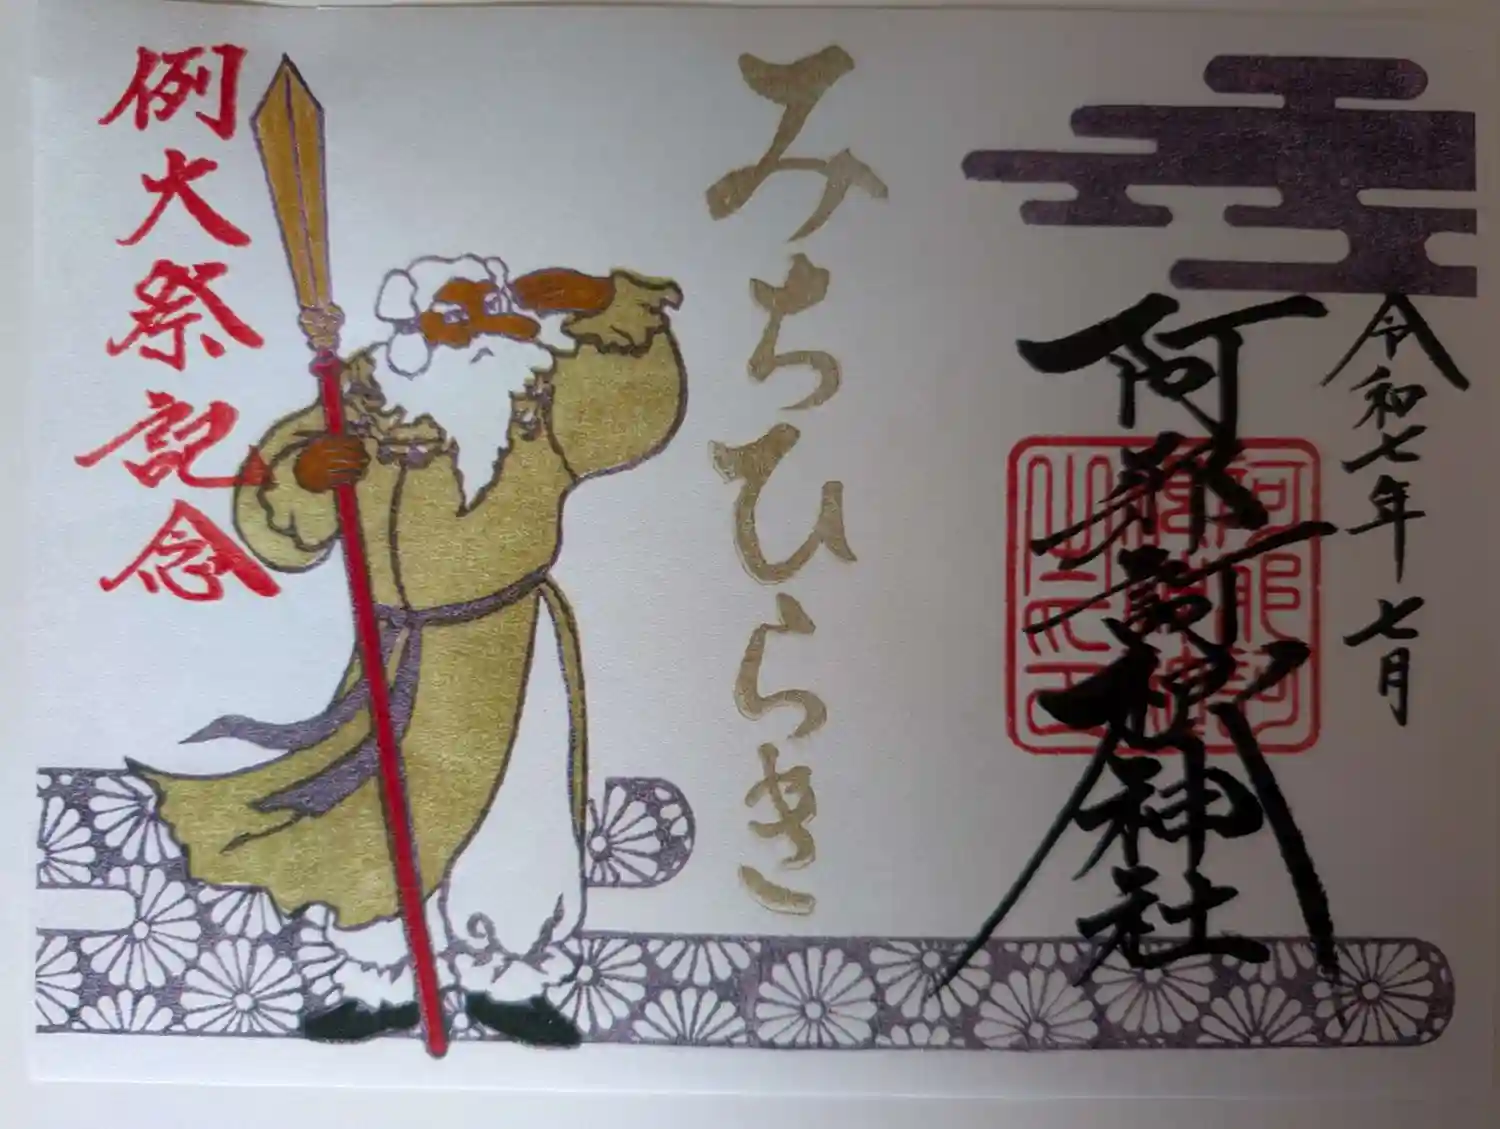 令和七年七月
阿邪訶根神社
みちひらき
例大祭記念